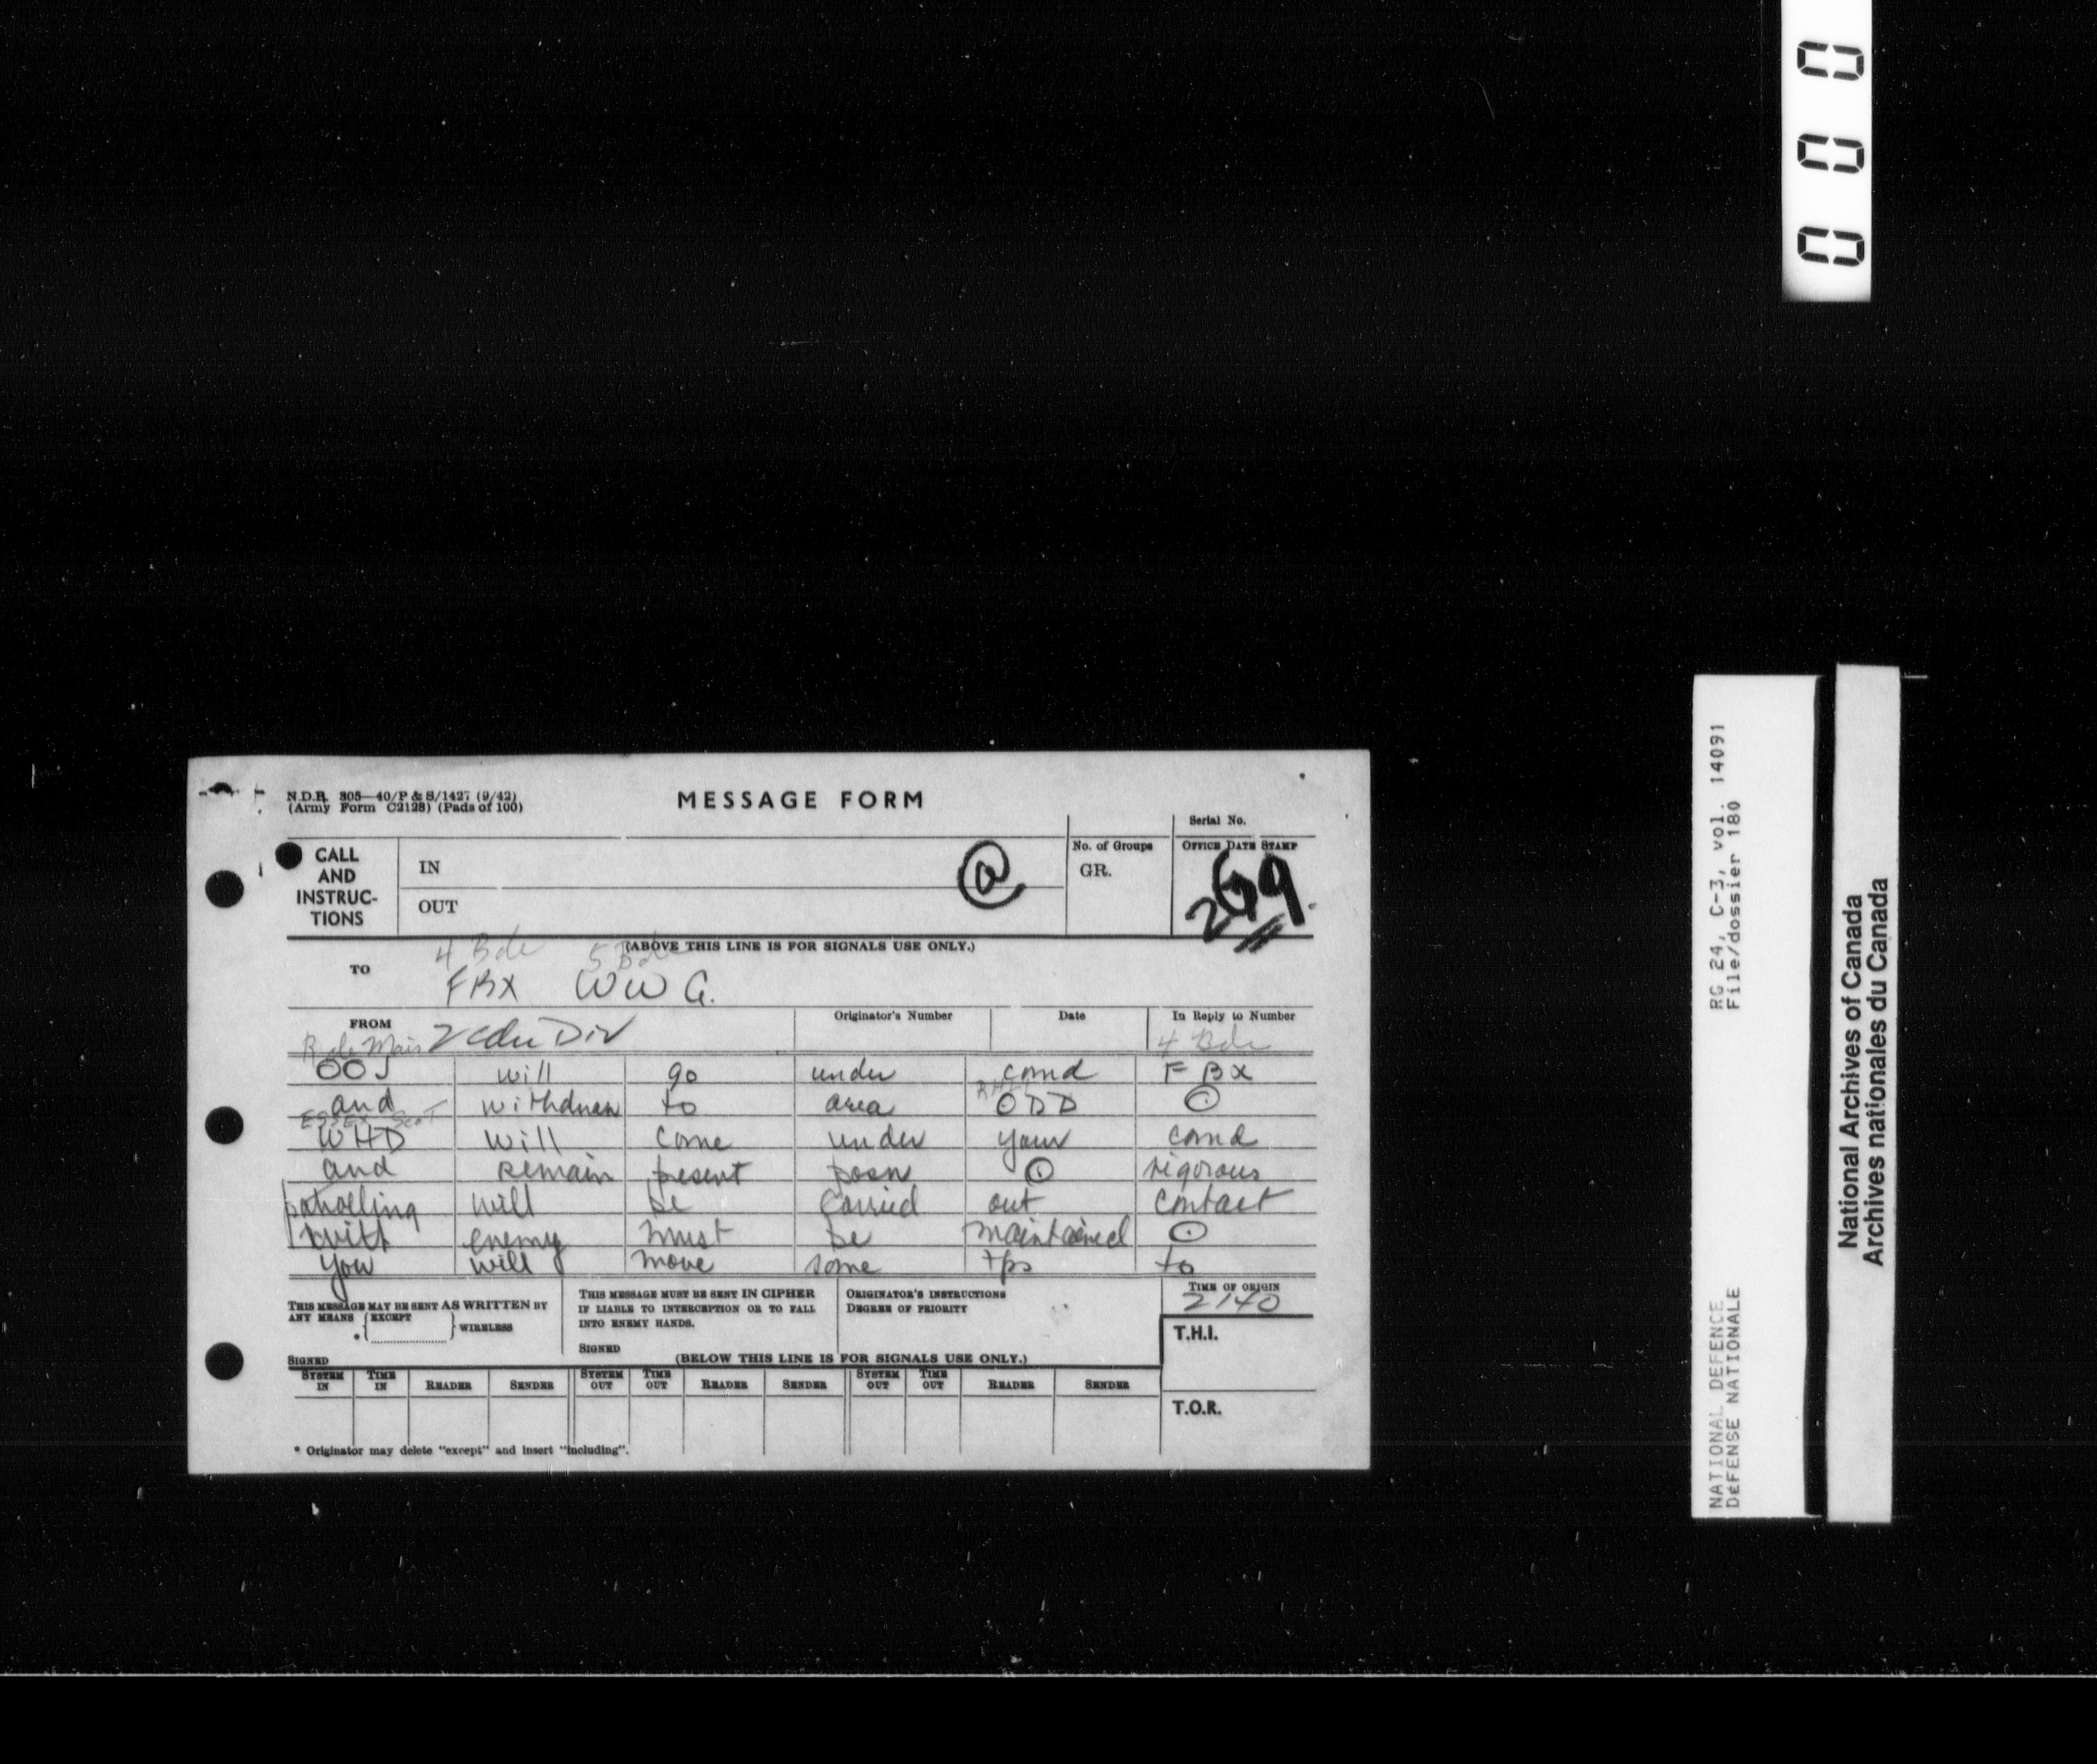 000
N.D.B. 305—40/P & S/1427 (9/42)
(Army Form C2128) (Pads of 100)
MESSAGE FORM
Serial No.
CALL AND INSTRUC-TIONS
IN
OUT
No. of Groups
GR.
OFFICE DATE STAMP
(ABOVE THIS LINE IS FOR SIGNALS USE ONLY.)
4 Bde 5 Bde
TO FBX WWG.
FROM 2 Cdn Div
Originator's Number
Date
In Reply to Number
R de Mais 4 Bde
OOJ will go under comd FBX
and withdraw to area ODD ⊙
ESSEX Scot
WHD will come under your comd
and remain present posn ⊙ vigorous
patrolling will be carried out contact
with enemy must be maintained ⊙
you will move some tps to
THIS MESSAGE MAY BE SENT AS WRITTEN BY
ANY MEANS EXCEPT WIRELESS
SIGNED
THIS MESSAGE MUST BE SENT IN CIPHER
IF LIABLE TO INTERCEPTION OR TO FALL
INTO ENEMY HANDS.
SIGNED
ORIGINATOR'S INSTRUCTIONS
DEGREE OF PRIORITY
TIME OF ORIGIN
2140
T.H.I.
(BELOW THIS LINE IS FOR SIGNALS USE ONLY.)
SYSTEM IN TIME IN READER SENDER SYSTEM OUT TIME OUT READER SENDER SYSTEM OUT TIME OUT READER SENDER
T.O.R.
* Originator may delete "except" and insert "including".
RG 24, C-3, vol. 14091
File/dossier 180
NATIONAL DEFENCE
DÉFENSE NATIONALE
National Archives of Canada
Archives nationales du Canada